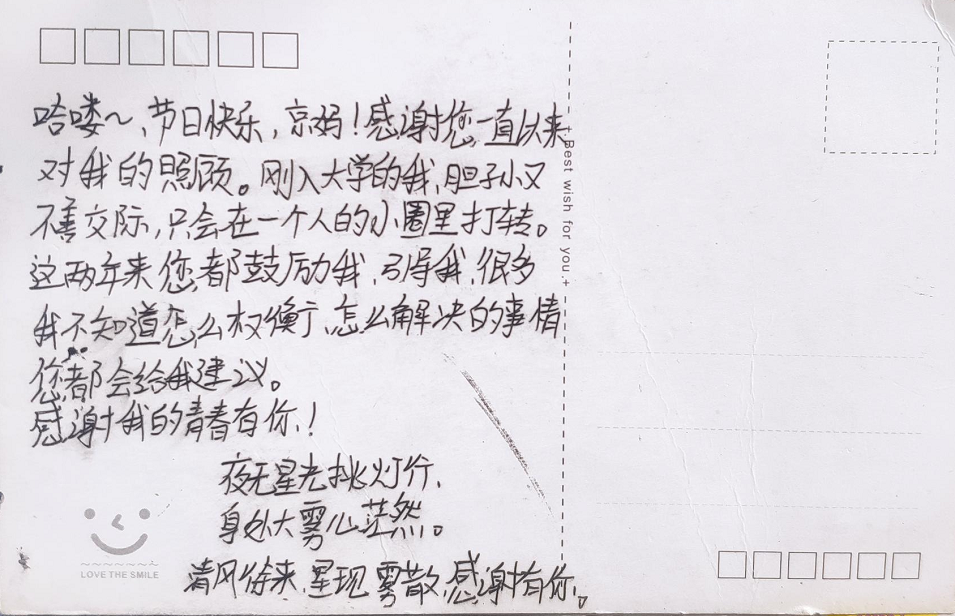 哈喽~、节日快乐,京妈!感谢您一直以来
对我的照顾。刚入大学的我,胆子小又
不善交际,只会在一个人的小圈里打转。
这两年来您都鼓励我,引导我,很多
我不知道怎么权衡,怎么解决的事情
您都会给我建议。
感谢我的青春有你!
夜无星光挑灯行,
身处大雾心茫然。
清风徐来,星现雾散,感谢有你。
LOVE THE SMILE
+Best wish for you.+